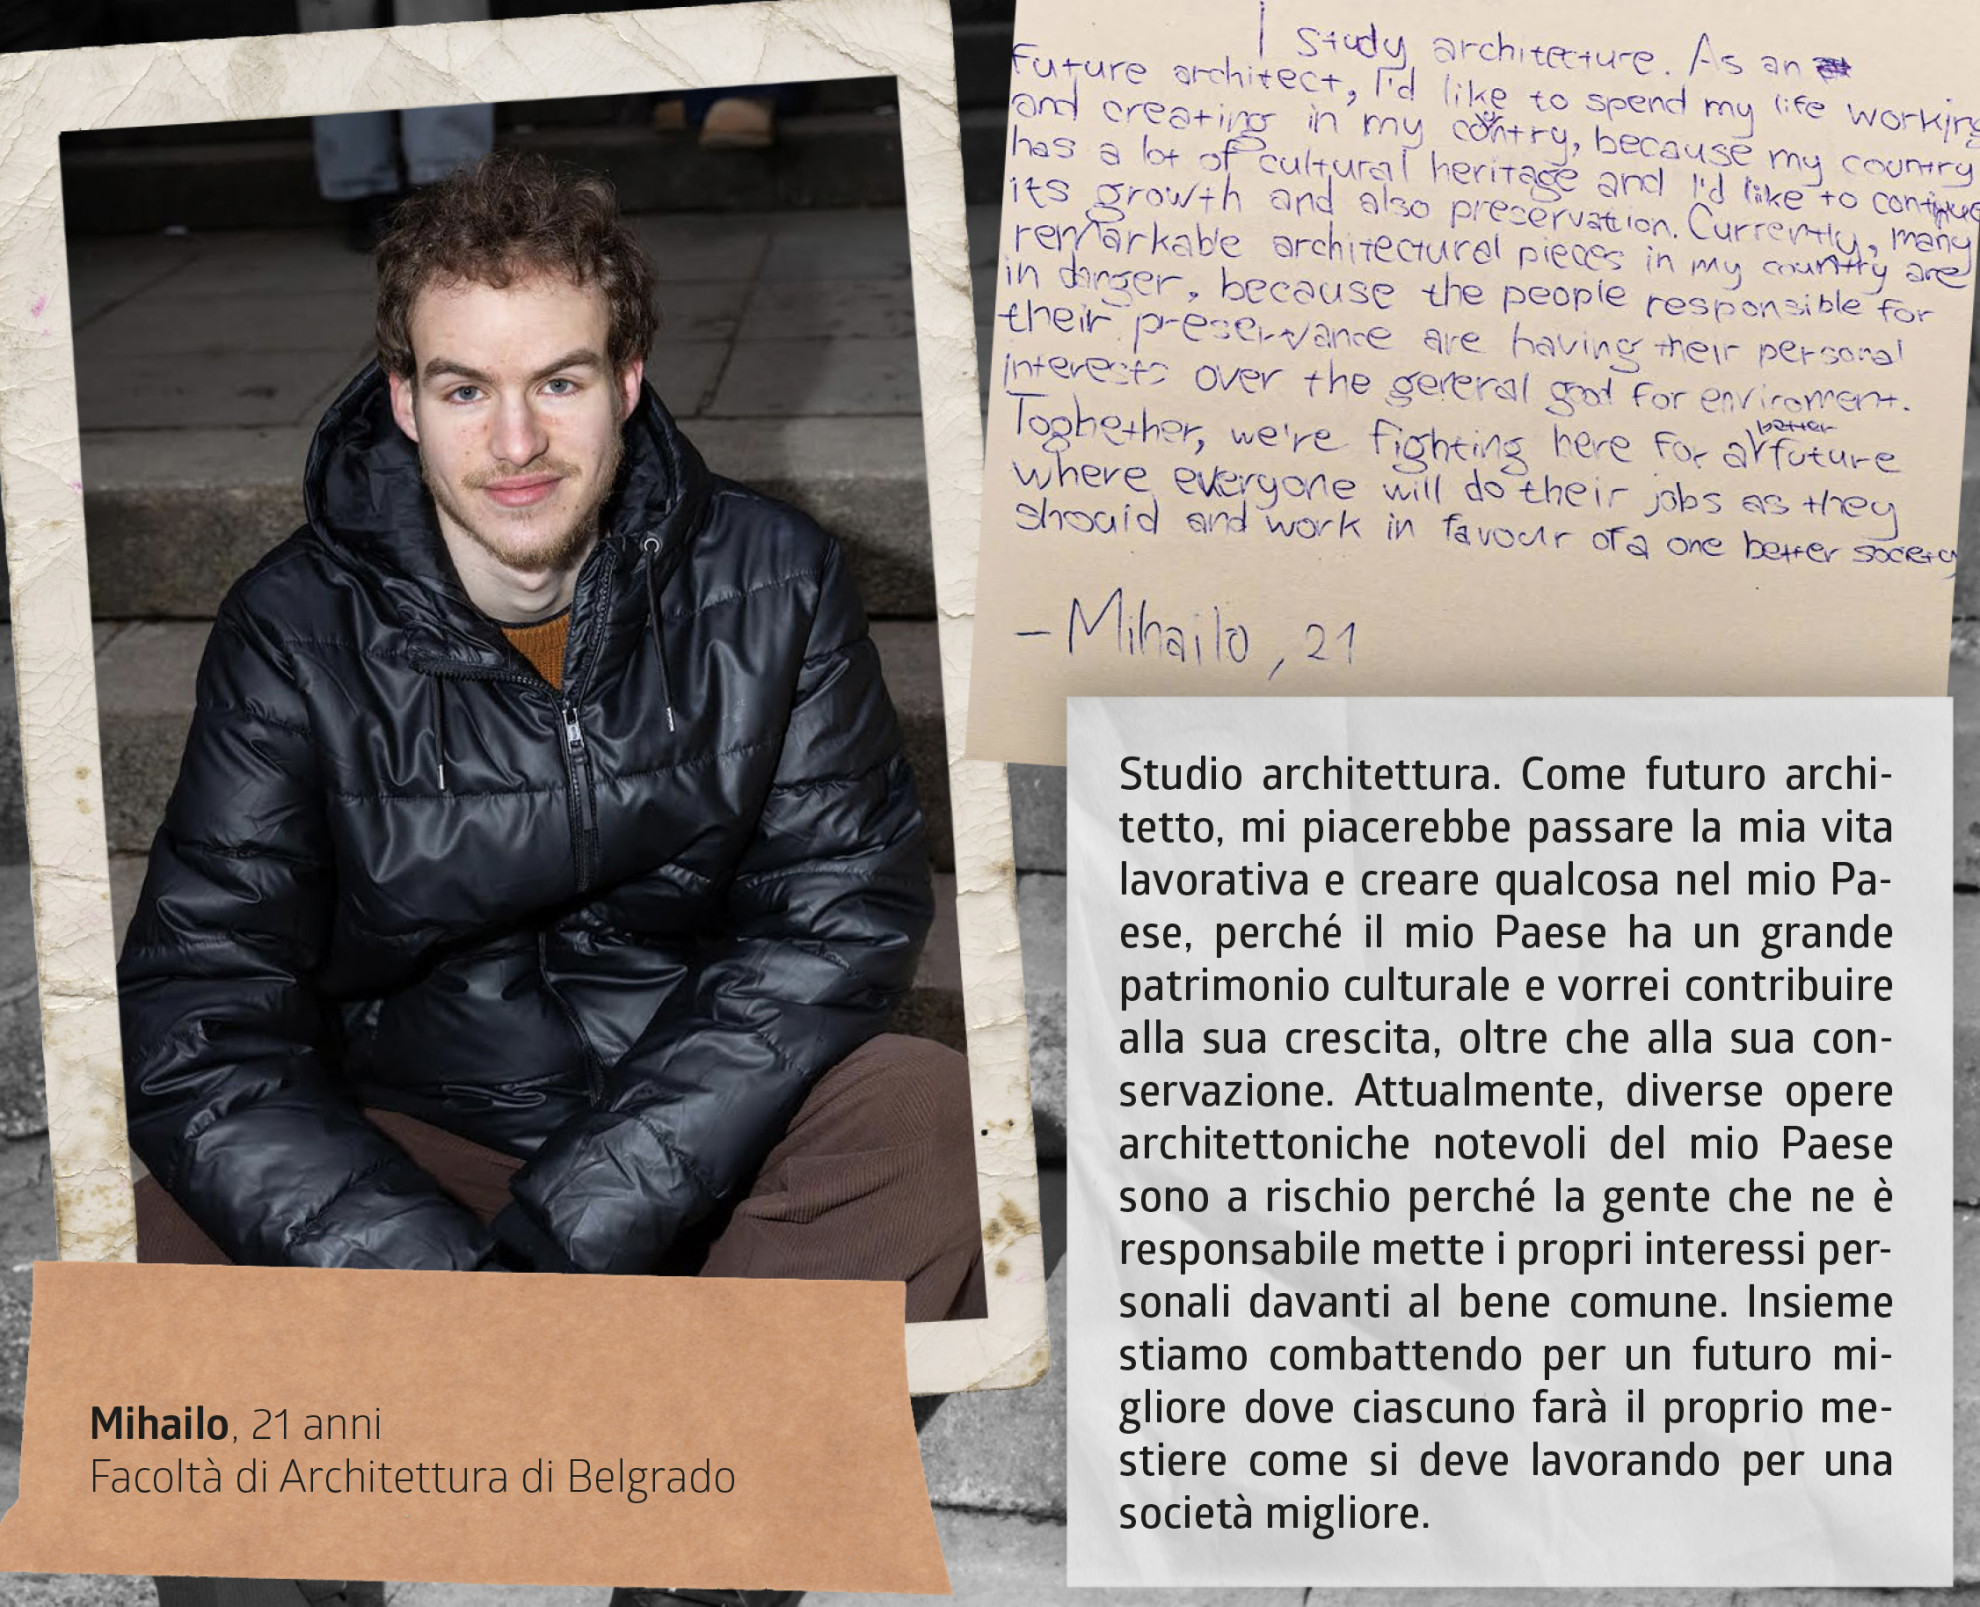 I study architecture. As an
future architect, I'd like to spend my life working
and creating in my country, because my country
has a lot of cultural heritage and I'd like to continue
its growth and also preservation. Currently, many
remarkable architectural pieces in my country are
in danger, because the people responsible for
their preservance are having their personal
interests over the general good for enviroment.
Toghether, we're fighting here for a better future
where everyone will do their jobs as they
should and work in favour of a one better society
– Mihailo, 21
Studio architettura. Come futuro archi-
tetto, mi piacerebbe passare la mia vita
lavorativa e creare qualcosa nel mio Pa-
ese, perché il mio Paese ha un grande
patrimonio culturale e vorrei contribuire
alla sua crescita, oltre che alla sua con-
servazione. Attualmente, diverse opere
architettoniche notevoli del mio Paese
sono a rischio perché la gente che ne è
responsabile mette i propri interessi per-
sonali davanti al bene comune. Insieme
stiamo combattendo per un futuro mi-
gliore dove ciascuno farà il proprio me-
stiere come si deve lavorando per una
società migliore.
Mihailo, 21 anni
Facoltà di Architettura di Belgrado